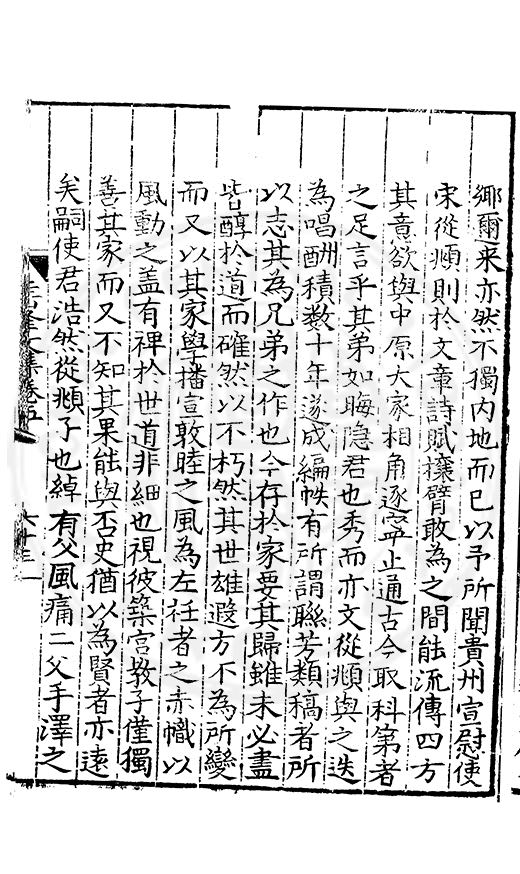 鄉爾來亦然不獨内地而已以予所聞貴州宣慰使
宋從頫則於文章詩賦攘臂敢為之間能流傳四方
其意欲與中原大家相角逐寧止通古今取科第者
之足言乎其弟如晦隐君也秀而亦文從頫與之迭
為唱酬積数十年遂成編帙有所謂聯芳類稿者所
以志其為兄弟之作也今存於家要其歸雖未必盡
皆醇於道而確然以不朽然其世雄遐方不為所變
而又以其家學播宣敦睦之風為左衽者之赤幟以
風動之盖有裨於世道非細也視彼築宫教子僅獨
善其家而又不知其果能與否史猶以為賢者亦遠
矣嗣使君浩然從頫子也綽有父風痛二父手澤之
圭峯文集卷五